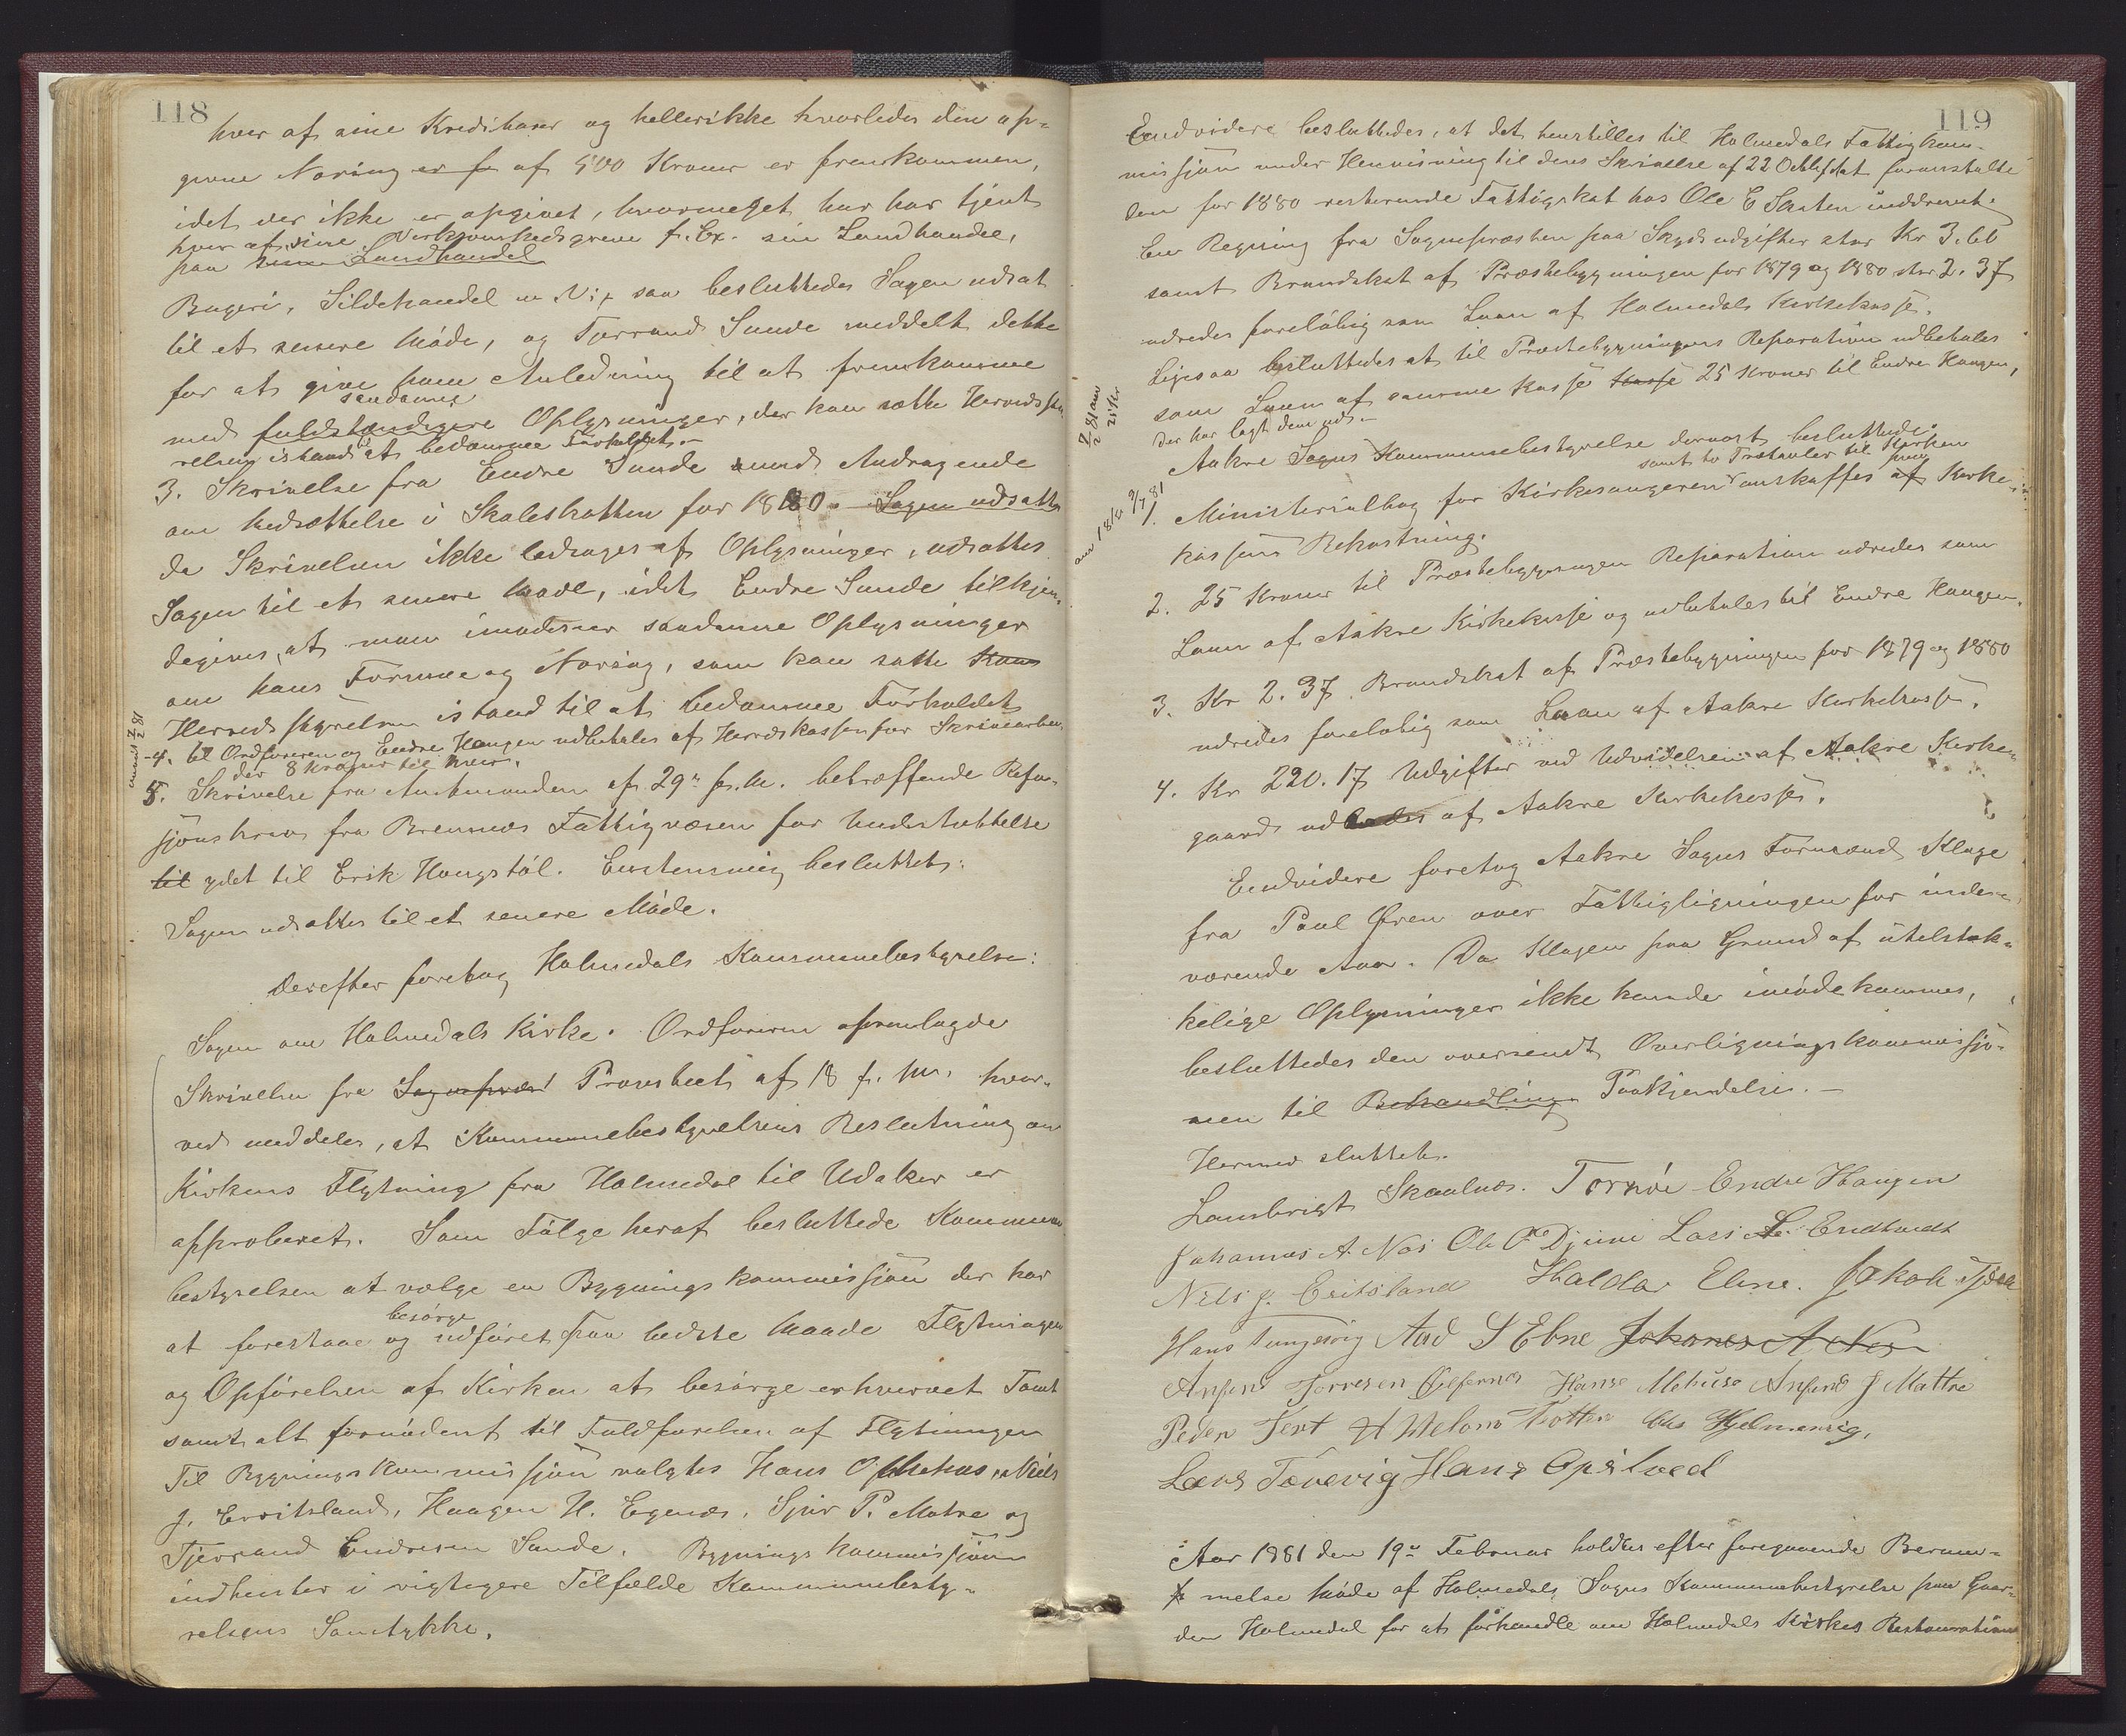 118
hver af sine Kreditorer og hellerikke hvorledes den op-
givne Næring er f af 500 Kroner er fremkommen,
idet der ikke er opgivet, hvormeget har har tjent
hver af sine Virksomhedsgrene f. Ex. sin Landhandel,
paa sin Landhandel
Bageri, Sildehandel m. V.; saa besluttedes Sagen udsat
til et senere Møde, og Tjerrand Sunde meddelt dette
for at give ham Anledning til at fremkomme
saadanne
med fuldstændigere Oplysninger, der kan sætte Herredssty-
relsen istand til at bedømme Forholdet.-
3. Skrivelse fra Endre Sunde med Andragende
om Nedsættelse i Skoleskatten for 1880. Sagen udsattes
da Skrivelsen ikke ledsages af Oplysninger, udsattes
Sagen til et senere Møde, idet Endre Sunde tilkjen-
degives, at man imødeser saadanne Oplysninger
om hans Formue og Næring, som kan sætte Kom
Herredsstyrelsen istand til at bedømme Forholdet
4. til Ordføreren og Endre Haugen udbetales af Herredskassen for Skrivearbei-
der 8 Kroner til hver.
5. Skrivelse fra Amtmanden af 29de f. M. betræffende Refu-
sjonskrav fra Bremnes Fattigvæsen for Understøttelse
til ydet til Erik Haugstøl. Enstemmig besluttet:
Sagen udsattes til et senere Møde.
Derefter foretog Holmedals Kommunebestyrelse:
Sagen om Holmedals Kirke. Ordføreren fremlagde
Skrivelse fra Sognepræst Provstiet af 18 f. M. hvor-
ved meddeles, at Kommunebestyrelsens Beslutning om
Kirkens Flytning fra Holmedal til Udaker er
approberet. Som Følge heraf besluttede Kommune
bestyrelsen at vælge en Bygningskommissjon der har
besørge
at forestaae og udføret paa bedste Maade Flytningen
og Opførelsen af Kirken at besørge erhvervet Tomt
samt alt fornødent til Fuldførelsen af Flytningen
Til Bygningskommissjon valgtes Hans O. Mehus, Niels
J. Eritsland, Haagen H. Egenæs, Sjur P. Matre og
Tjerrand Endresen Sunde. Bygningskommissjonen
indhenter i vigtigere Tilfælde Kommunebesty-
relsens Samtykke.
119
Endvidere besluttedes, at det henstilles til Holmedals Fattigkom-
missjon under Henvisning til dens Skrivelse af 22 Octbr foranstalte
den for 1880 resterende Fattigskat hos Ole E Skaten inddrevet.
En Regning fra Sognepræsten paa Skydsudgifter stor Kr 3.60
samt Brandskat af Præstebygningen for 1879 og 1880 stor 2.37
udredes foreløbig som Laan af Holmedals Kirkekasse.
Ligesaa besluttedes at til Præstebygningens Reparation udbetales
som Laan af samme Kasse Kasse 25 Kroner til Endre Haugen,
der har lagt dem ud.-
Aakre Sogns Kommunebestyrelse dernæst besluttede:
samt to Trætavler til Kirken
1. Ministerialbog for Kirkesangeren anskaffes af Kirke-
kassens Bekostning.
2. 25 Kroner til Præstebygningen Reparation udredes som
Laan af Aakre Kirkekasse og udbetales til Endre Haugen.
3. Kr 2.37 Brandskat af Præstebygningen for 1879 og 1880
udredes foreløbig som Laan af Aakre Kirkekasse.
4. Kr 220.17 Udgifter ved Udvidelsen af Aakre Kirke-
gaard udredes af Aakre Kirkekasse.
Endvidere foretog Aakre Sogns Formænd Klage
fra Poul Øren over Fattigligningen for inde-
værende Aar. Da Klagen paa Grund af utilstræk-
kelige Oplysninger ikke kunde imødekommes,
besluttedes den oversendt Overligningskommissjo-
nen til Behandling Paakjendelse.-
Hermed sluttet.
Lambrigt Skaalnes. Tornøe Endre Haugen
Johannes A. Næs Ole O Djuve Lars L. Endtvedt
Nils J. Eritsland Haldor Ebne. Jakob
Hans Tungesvig And S Ebne Johannes A Næs
Anfind Torresen Hans Mehuse Anfind J Mattre
Peder H Milano Hjelmervig,
Lars Tørevig Hans Opsloed
Aar 1881 den 19de Februar holdtes efter foregaaende Beram-
melse Møde af Holmedals Sogns Kommunebestyrelse paa Gaar-
den Holmedal for at forhandle om Holmedals Kirkes Restauration